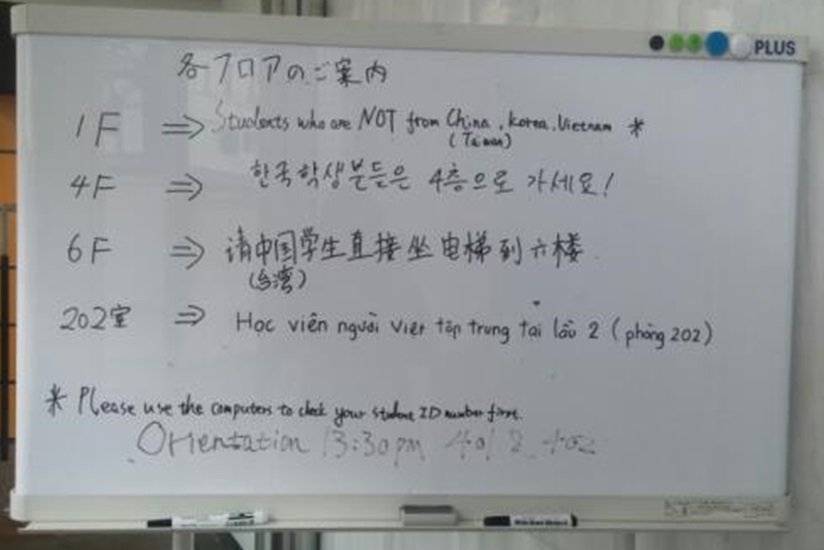 PLUS
各フロアのご案内
1F ⇒ Students who are NOT from China, Korea, Vietnam *
(Taiwan)
4F ⇒ 한국학생분들은 4층으로 가세요!
6F ⇒ 请中国学生直接坐电梯到六楼.
(台湾)
202室 ⇒ Học viên người Việt tập trung tại lầu 2 (phòng 202)
* Please use the computers to check your student ID number first.
Orientation 13:30pm 401 2 402